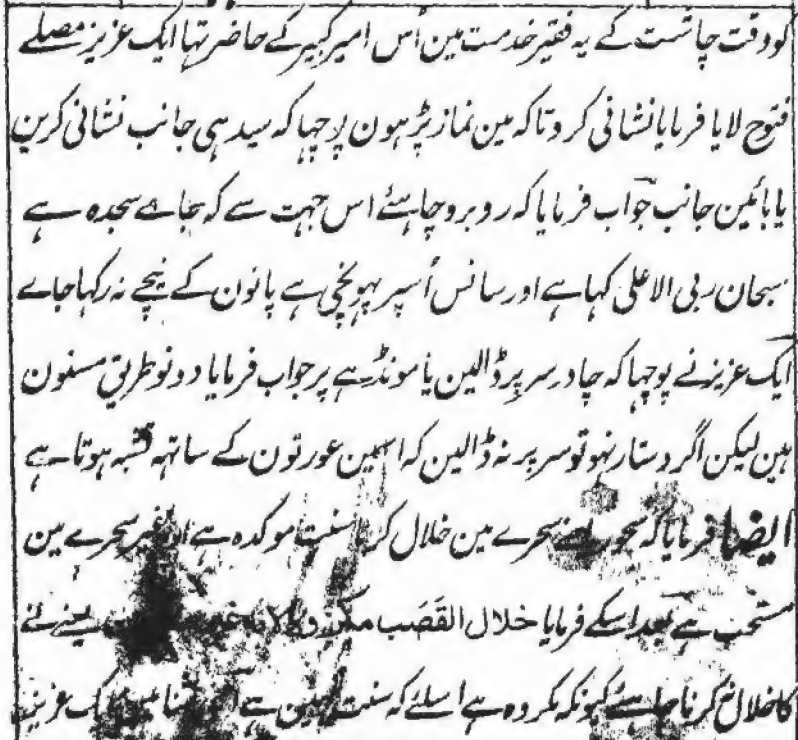 کو وقت چاشت کے یہ فقیر خدمت مین اُس امیر کبیر کے حاضر تہا ایک عزیز مصلے
فتوح لایا فرمایا نشانی کر دو تاکہ مین نماز پڑہون پوچہا کہ سیدہی جانب نشانی کرین
یا بائین جانب جواب فرمایا کہ روبرو چاہئے اس جہت سے کہ جاے سجدہ ہے
سبحان ربی الاعلی کہا ہے اور سانس اُسپر پہونچی ہے پانون کے نیچے نہ رکہا جاے
ایک عزیز نے پوچہا کہ چادر سر پر ڈالین یا مونڈہے پر جواب فرمایا دونو طریق مسنون
ہین لیکن اگر دستار نہو تو سر پر نہ ڈالین کہ اسمین عورتون کے ساتہہ تشبہ ہوتا ہے
ایضا فرمایا کہ سحرے مین خلال کرنا سنت موکدہ ہے اور غیر سحرے مین
مستحب ہے بعد اسکے فرمایا خلال القَصَب مکروہ یعنے نے
کا خلال نکرنا چاہئے کیونکہ مکروہ ہے اسلئے کہ سنت نہین ہے ایک عزیز